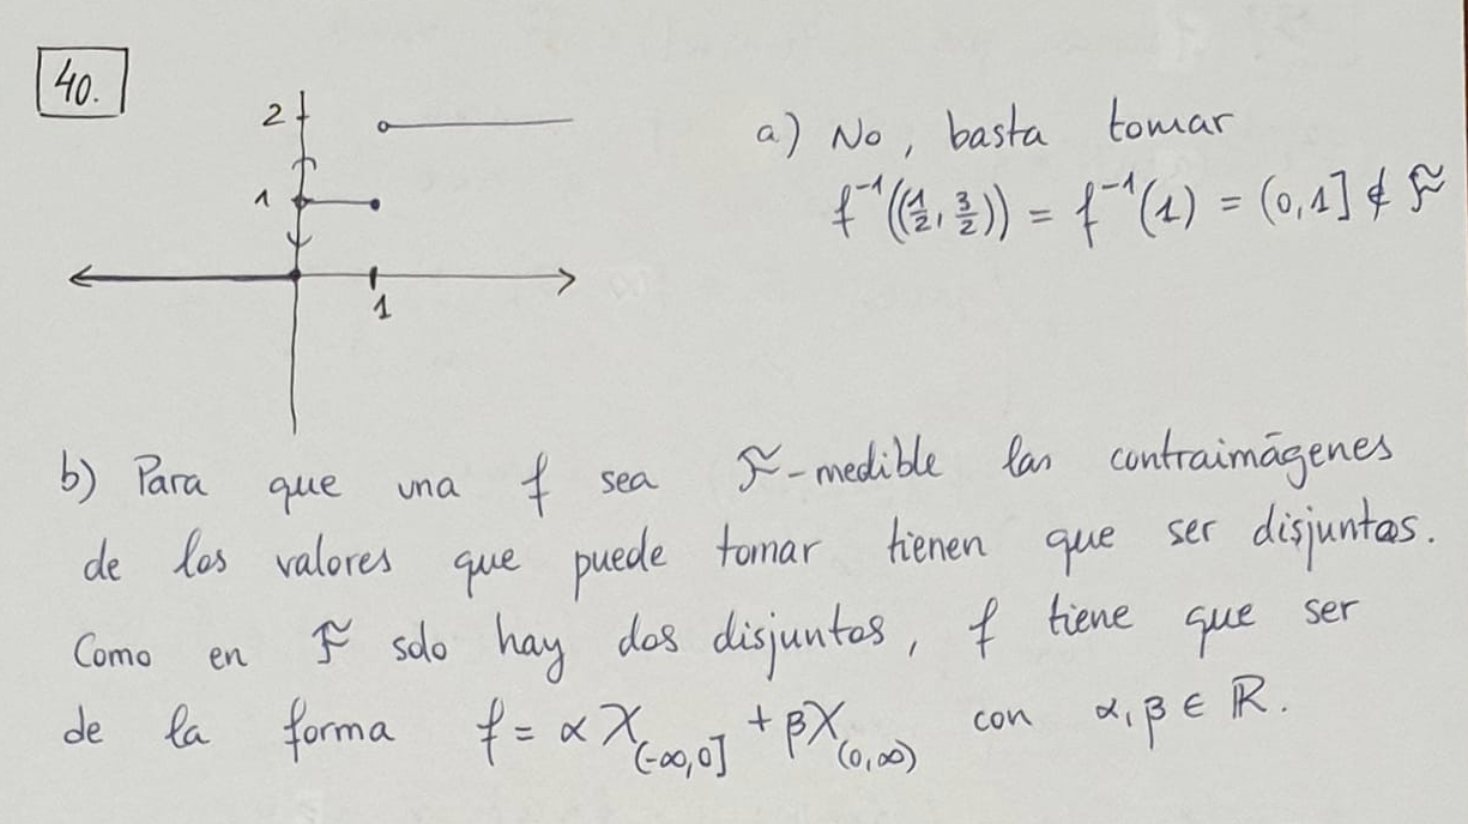 40.
2
1
1
a) No, basta tomar
f⁻¹((1/2, 3/2)) = f⁻¹(1) = (0,1] ∉ F
b) Para que una f sea F-medible las contraimágenes
de los valores que puede tomar tienen que ser disjuntas.
Como en F solo hay dos disjuntos, f tiene que ser
de la forma f = αX_(-∞,0] + βX_(0,∞) con α, β ∈ ℝ.